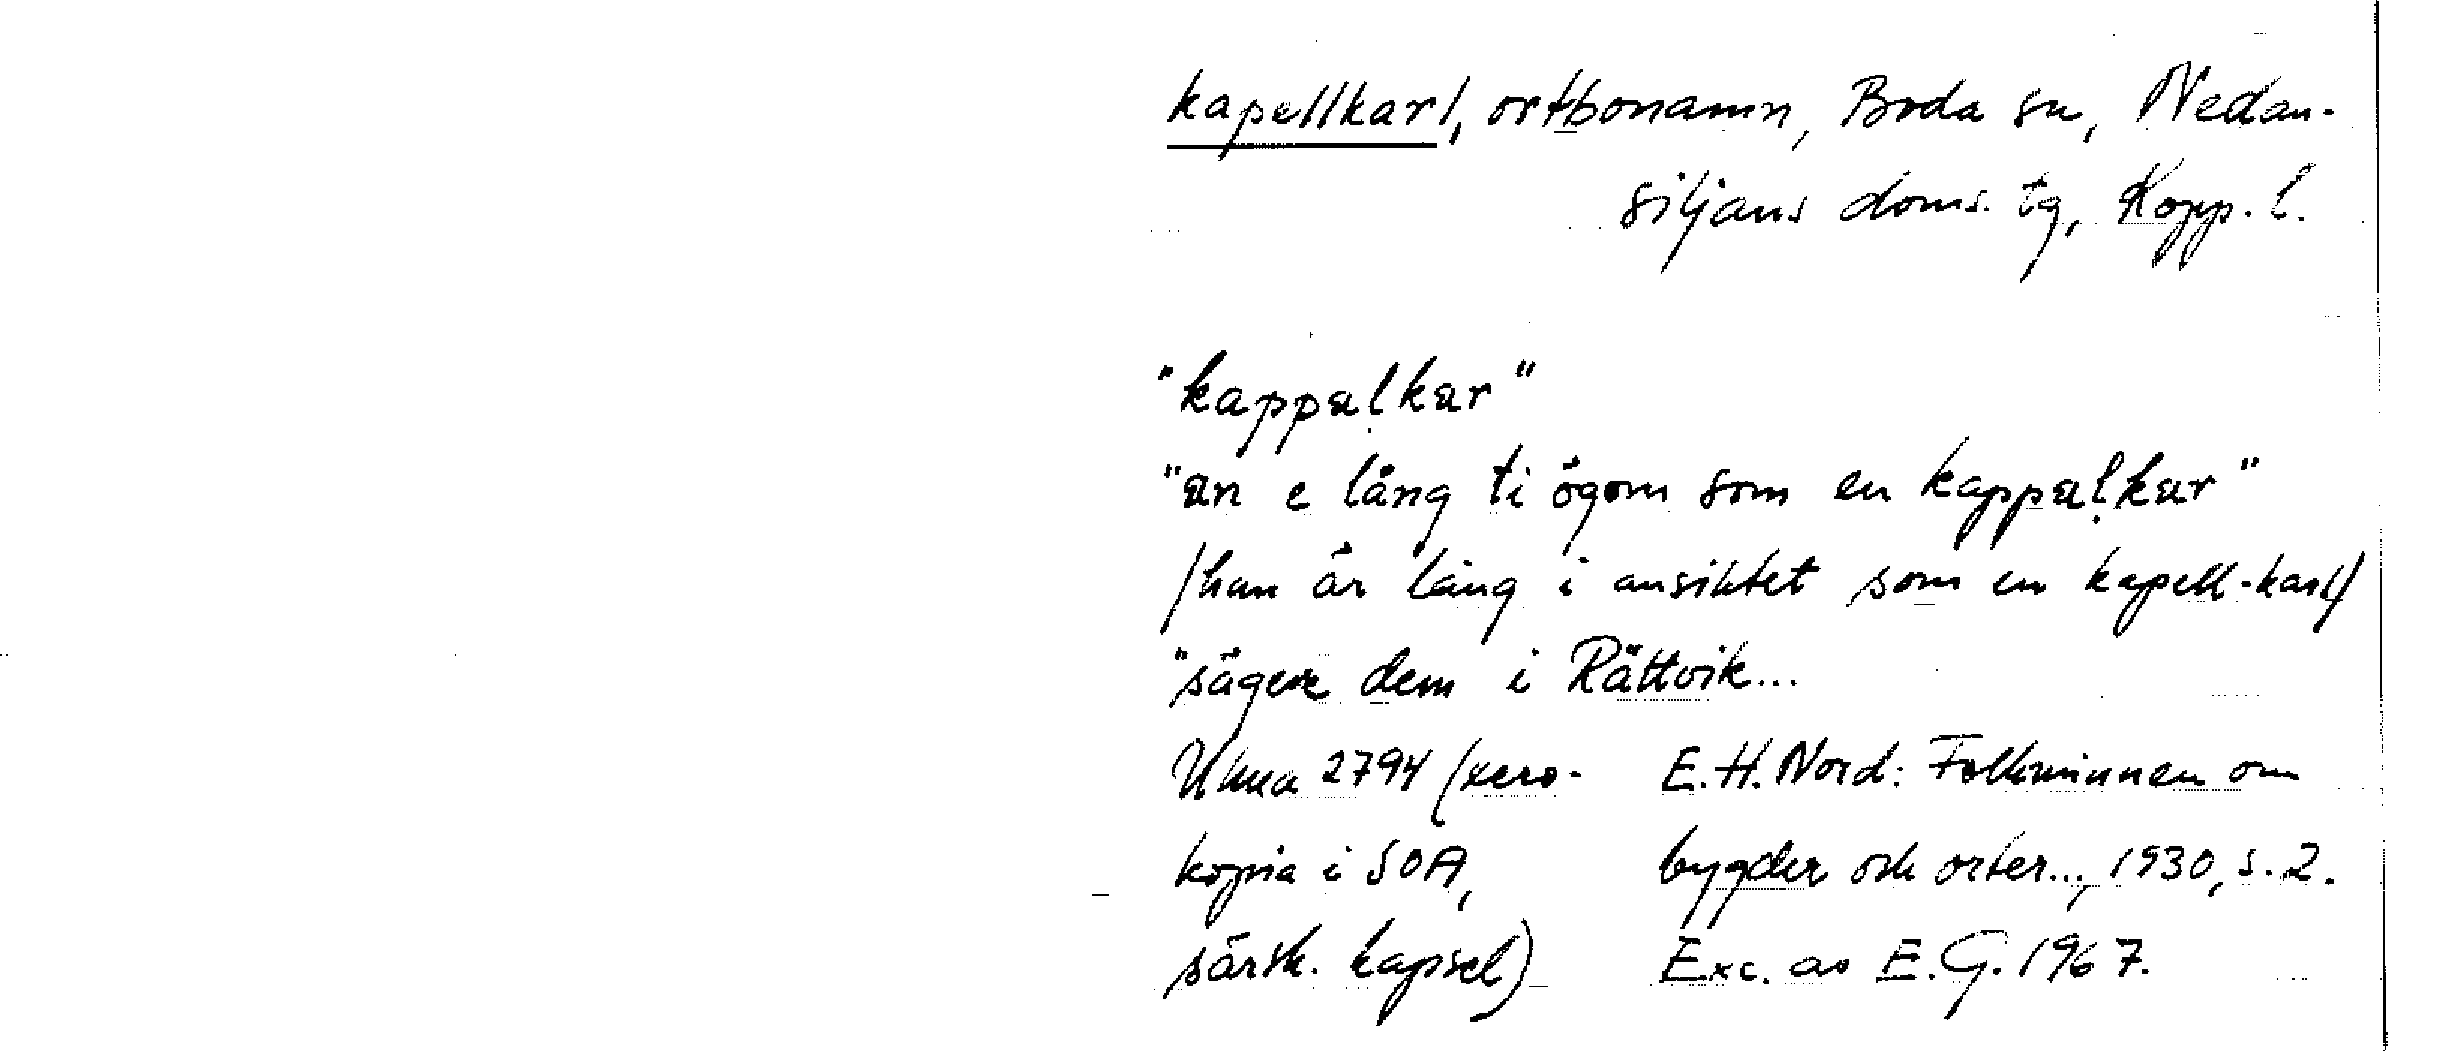 kapellkarl, ortbonamn, Boda sn, Nedan-
siljans doms. tg, Kopp. l.
"kappaḷkar"
"an e lång ti ögom som en kappaḷkar"
/han är lång i ansiktet som en kapell-karl/
"säger dem i Rättvik...
Ulma 2794 (xero- E.H. Nord: Folkminnen om
kopia i SOA, bygder och orter..., 1930, s. 2.
särsk. kapsel) Exc. av E.G. 1967.